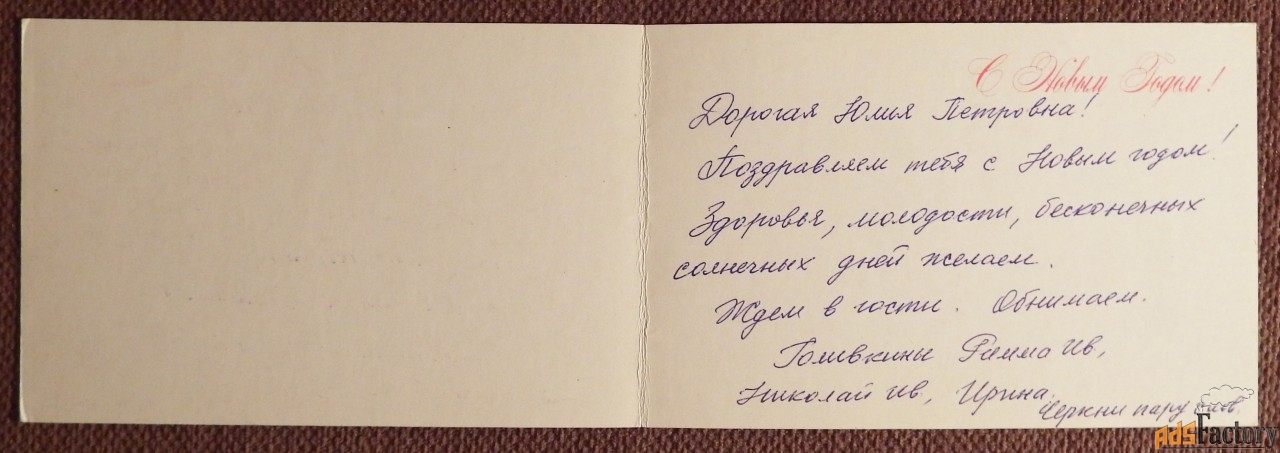 С Новым Годом!
Дорогая Юлия Петровна!
Поздравляем тебя с Новым годом!
Здоровья, молодости, бесконечных
солнечных дней желаем.
Ждем в гости. Обнимаем.
Голивкины Римма Ив,
Николай Ив, Ирина.
Черкни пару
AdsFactory